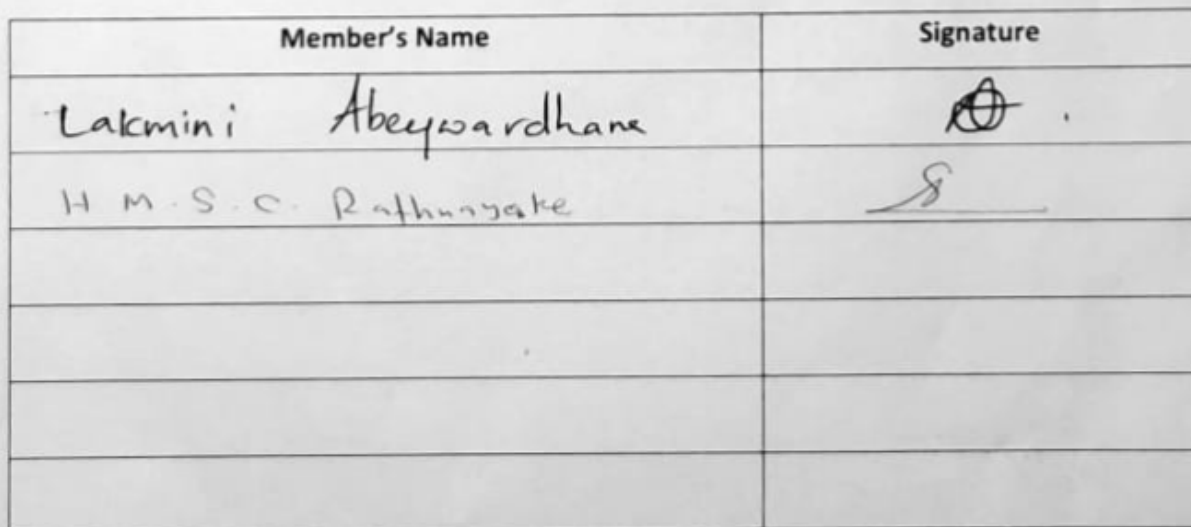 Member's Name Signature
Lakmini Abeywardhana
H M. S. C. Rathnayake